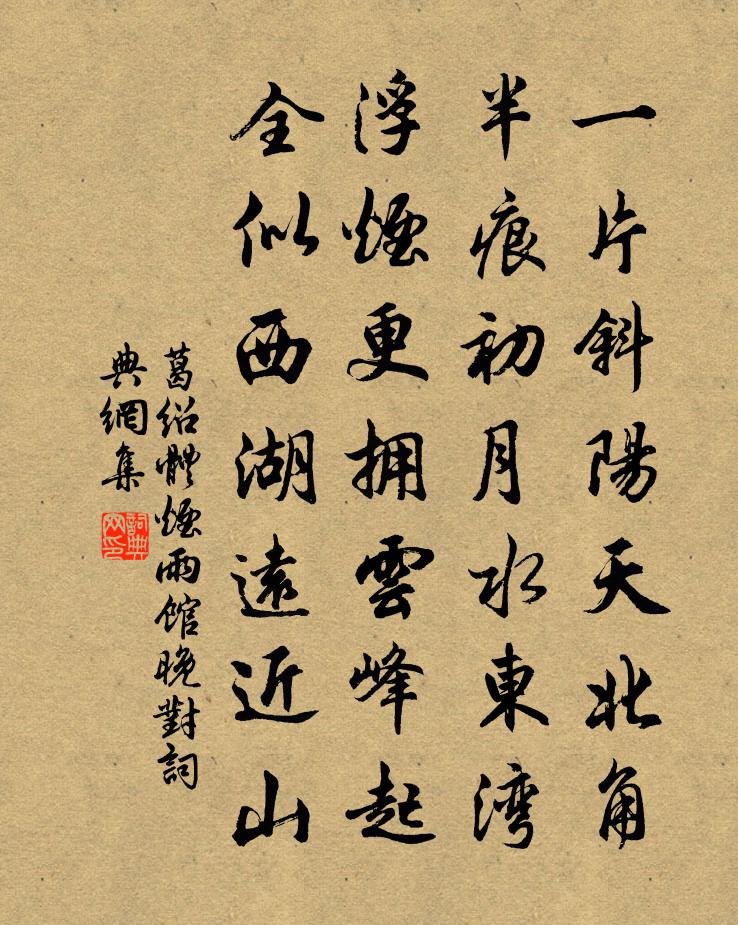 一片斜陽天北角
半痕初月水東湾
浮煙更拥雲峰起
全似西湖遠近山
葛绍體煙雨館晚對詞
典網集
詞典
网印